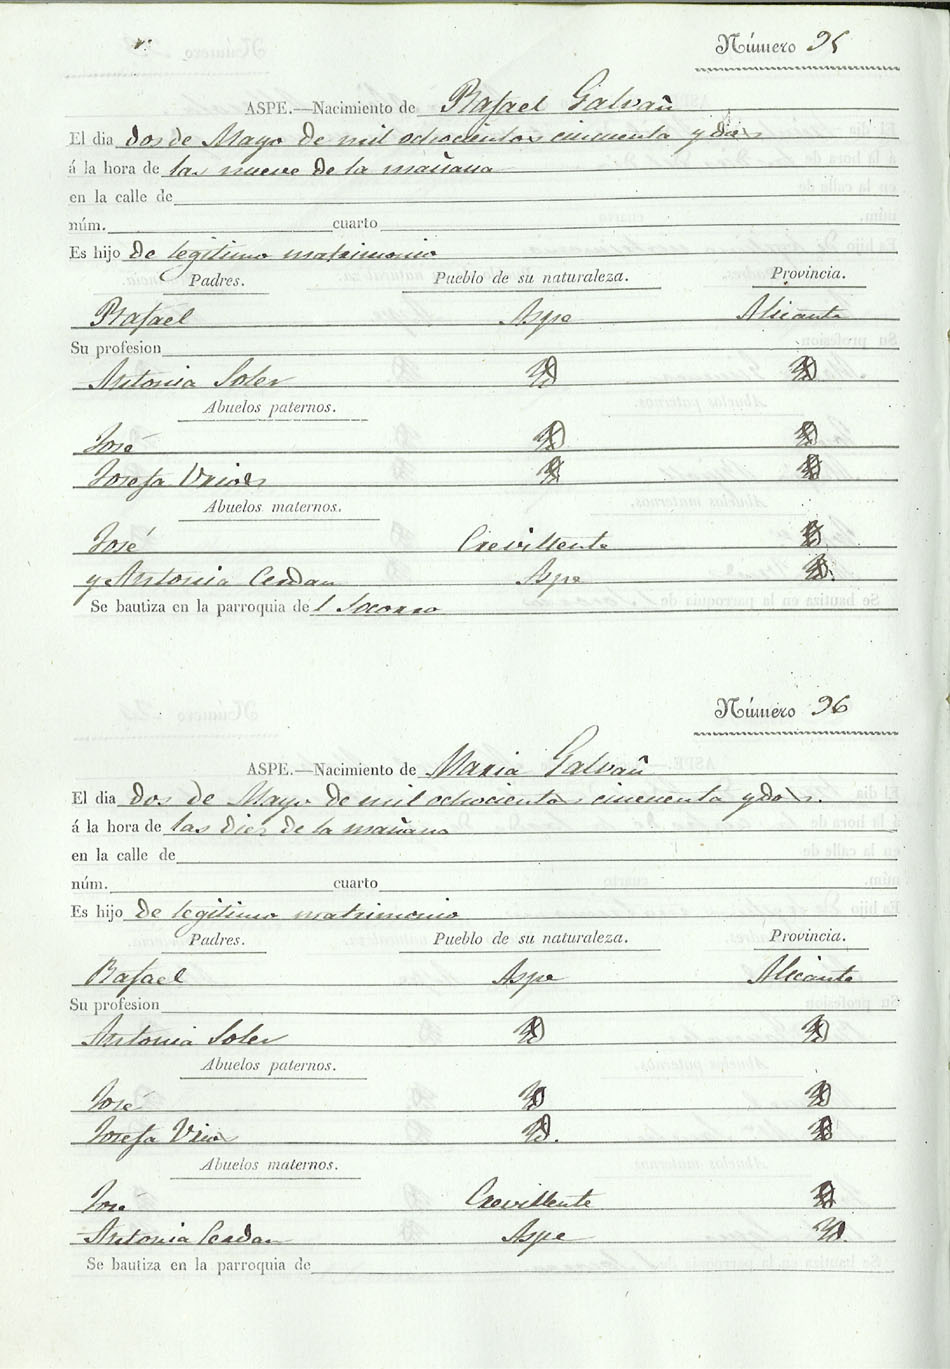 Número 95
ASPE.—Nacimiento de Rafael Galvañ
El dia dos de Mayo de mil ochocientos cincuenta y dos
á la hora de las nueve de la mañana
en la calle de
núm. cuarto
Es hijo de legitimo matrimonio
Padres. Pueblo de su naturaleza. Provincia.
Rafael Aspe Alicante
Su profesion
Antonia Soler
Abuelos paternos.
José
Josefa
Abuelos maternos.
José Crevillente
y Antonia Cerdan Aspe
Se bautiza en la parroquia del Socorro
Número 96
ASPE.—Nacimiento de Maria Galvañ
El dia dos de Mayo de mil ochocientos cincuenta y dos.
á la hora de las dies de la mañana
en la calle de
núm. cuarto
Es hijo de legitimo matrimonio
Padres. Pueblo de su naturaleza. Provincia.
Rafael Aspe Alicante
Su profesion
Antonia Soler
Abuelos paternos.
José
Josefa
Abuelos maternos.
José Crevillente
Antonia Cerdan Aspe
Se bautiza en la parroquia de